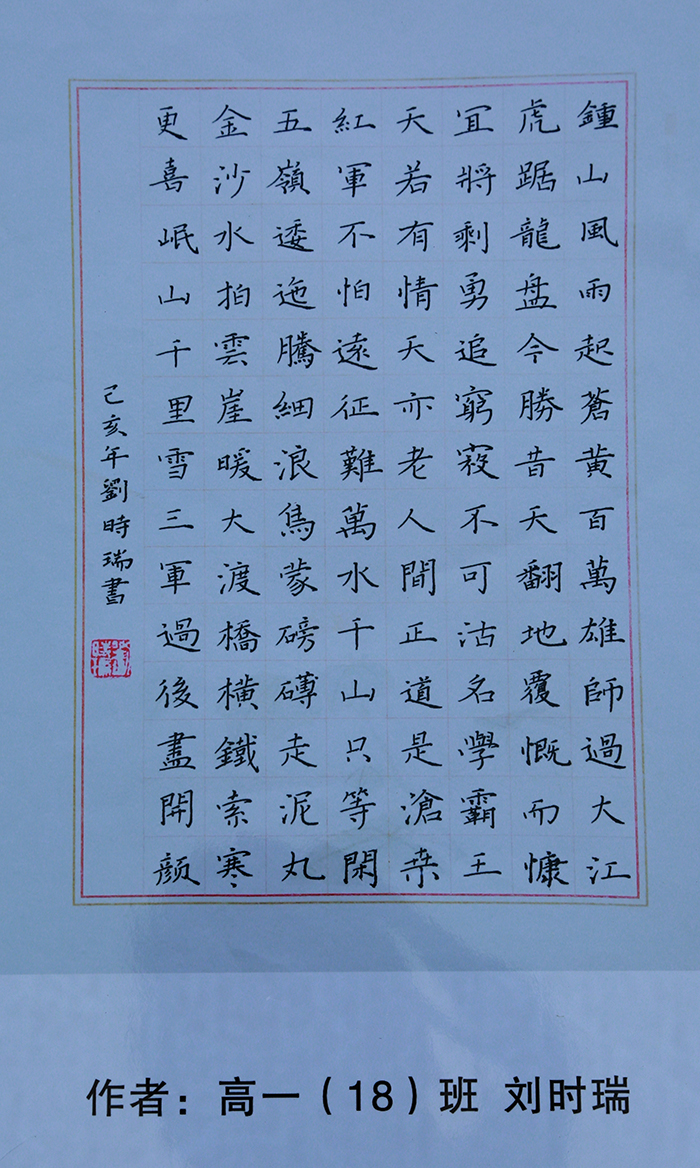 鍾山風雨起蒼黃百萬雄師過大江
虎踞龍盤今勝昔天翻地覆慨而慷
宜將剩勇追窮寇不可沽名學霸王
天若有情天亦老人間正道是滄桑
紅軍不怕遠征難萬水千山只等閑
五嶺逶迤騰細浪烏蒙磅礴走泥丸
金沙水拍雲崖暖大渡橋橫鐵索寒
更喜岷山千里雪三軍過後盡開顏
己亥年劉時瑞書
作者：高一（18）班 刘时瑞